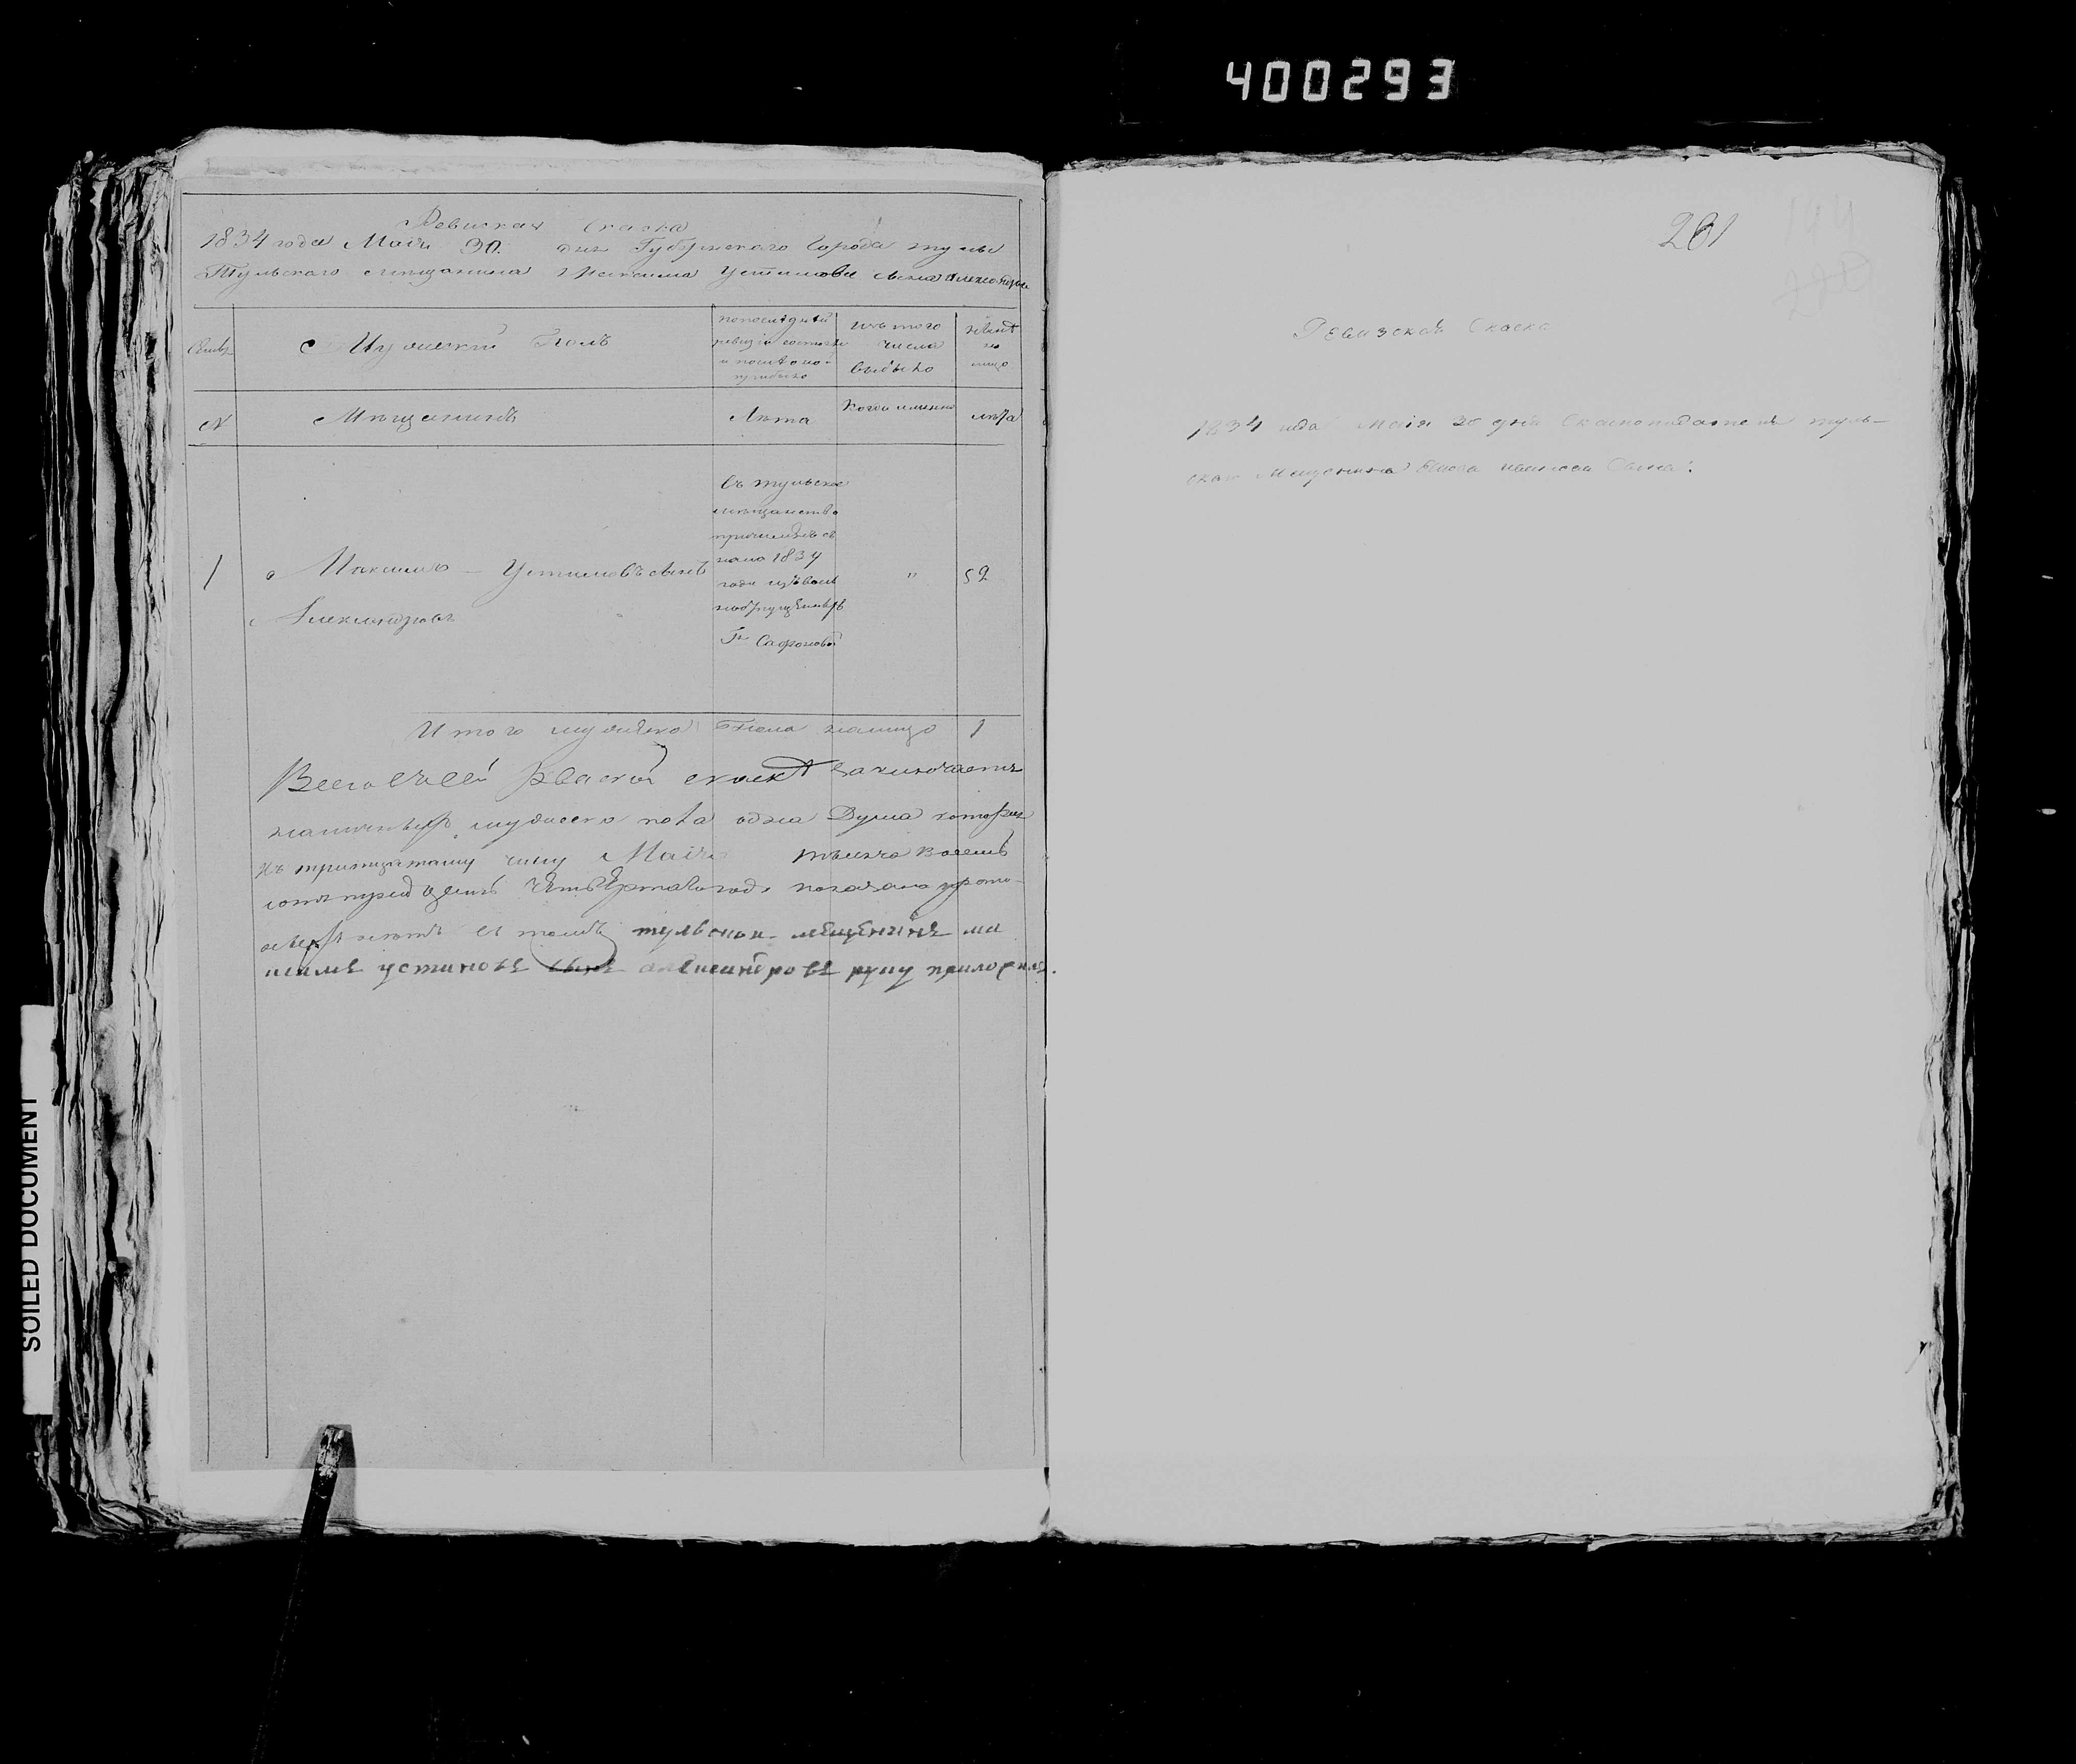 400293
Ревиская Скаска
1834 года Маія 30. дня Губернскаго Города тулы
Тульскаго мещанина Максима Устинова сына Александрова
Семьи
Мужеский Полъ
по последней
ревизіи состояло
и после оной
прибыло
изъ того
числа
выбыло
ныне
на
лицо
№
Мещанинъ
Лета
Когда именно
лета
1
Максимъ Устиновъ сынъ
Александровъ
въ тульское
мещанство
причисленъ съ
1834
года
Гж Сафоновой
"
52
Итого мужеска Пола налицо 1
Всего в сей скаске заключается
мужеска пола одна Душа
къ тридцатому числу Маія тысяча восемь
сотъ тридцать четвертаго года показана
въ томъ тульскои мещенинъ ма
ксимъ устиновъ сынъ александровъ руку приложилъ.
261
144
220
Ревизская Скаска
1834 года Маія 30 дня Скаскоподатель туль-
скаго Мещенина сына.
SOILED DOCUMENT